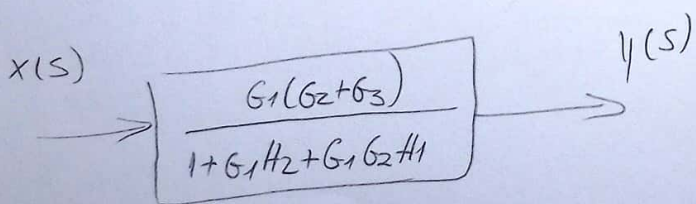 X(S)
Y(S)
G1(G2+G3)
1+G1H2+G1G2H1